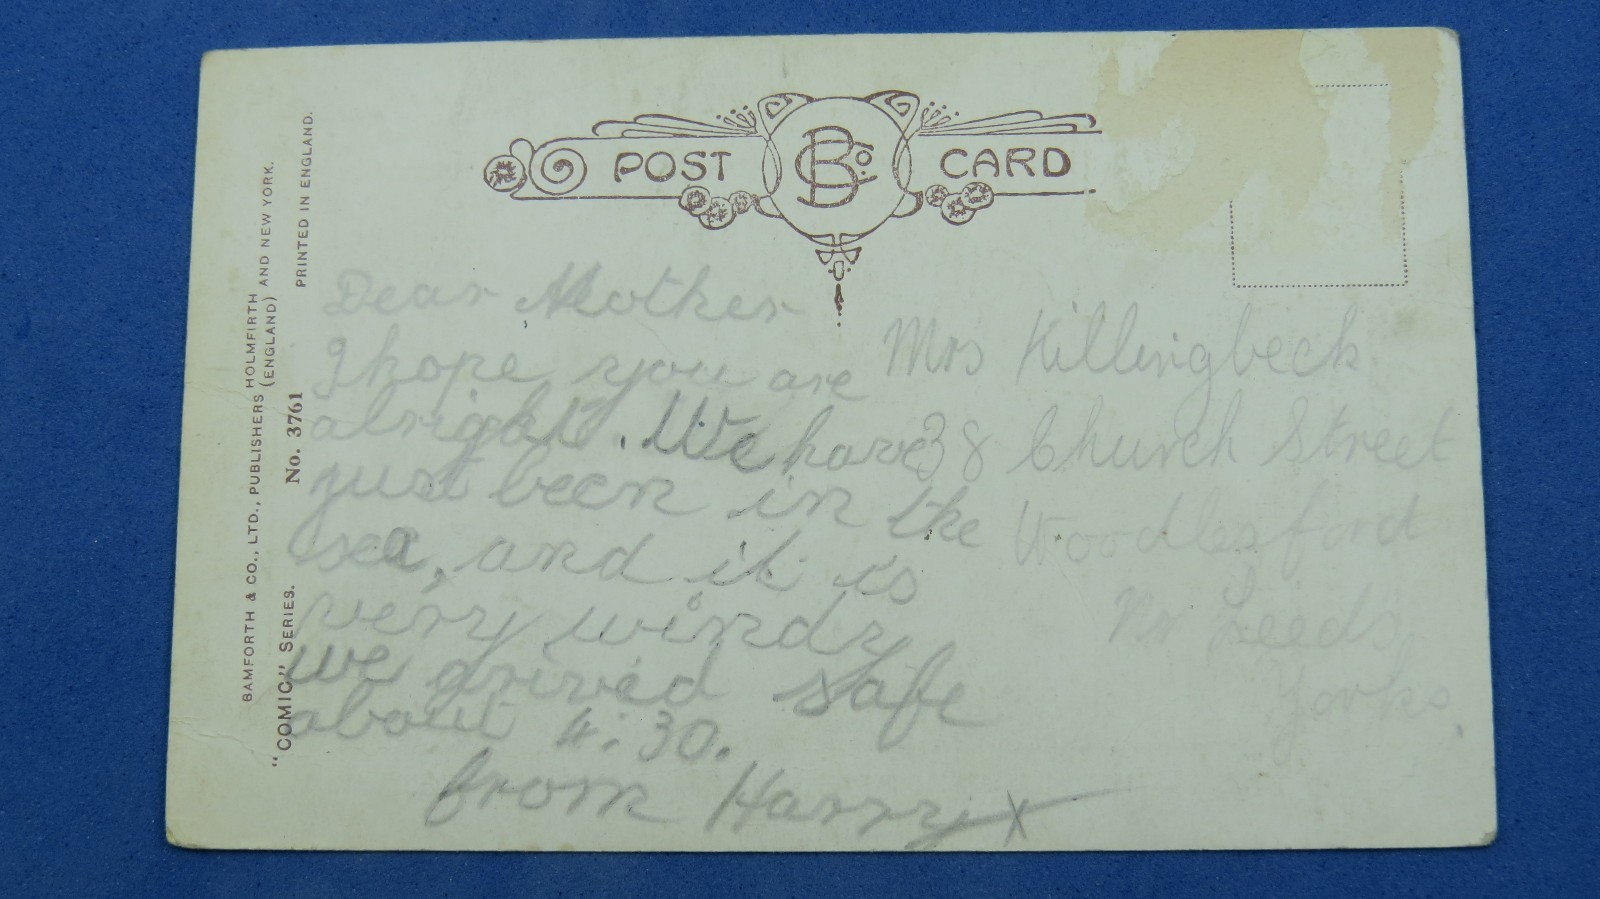 BAMFORTH & CO., LTD., PUBLISHERS HOLMFIRTH (ENGLAND) AND NEW YORK.
"COMIC" SERIES. No. 3761 PRINTED IN ENGLAND.
POST CARD
B Co.
Dear Mother
I hope you are
alright. We have
just been in the
sea, and it is
very windy
we arived safe
about 4.30.
from Harry x
Mrs Killingbeck
38 Church Street
Woodlesford
Nr Leeds
Yorks.